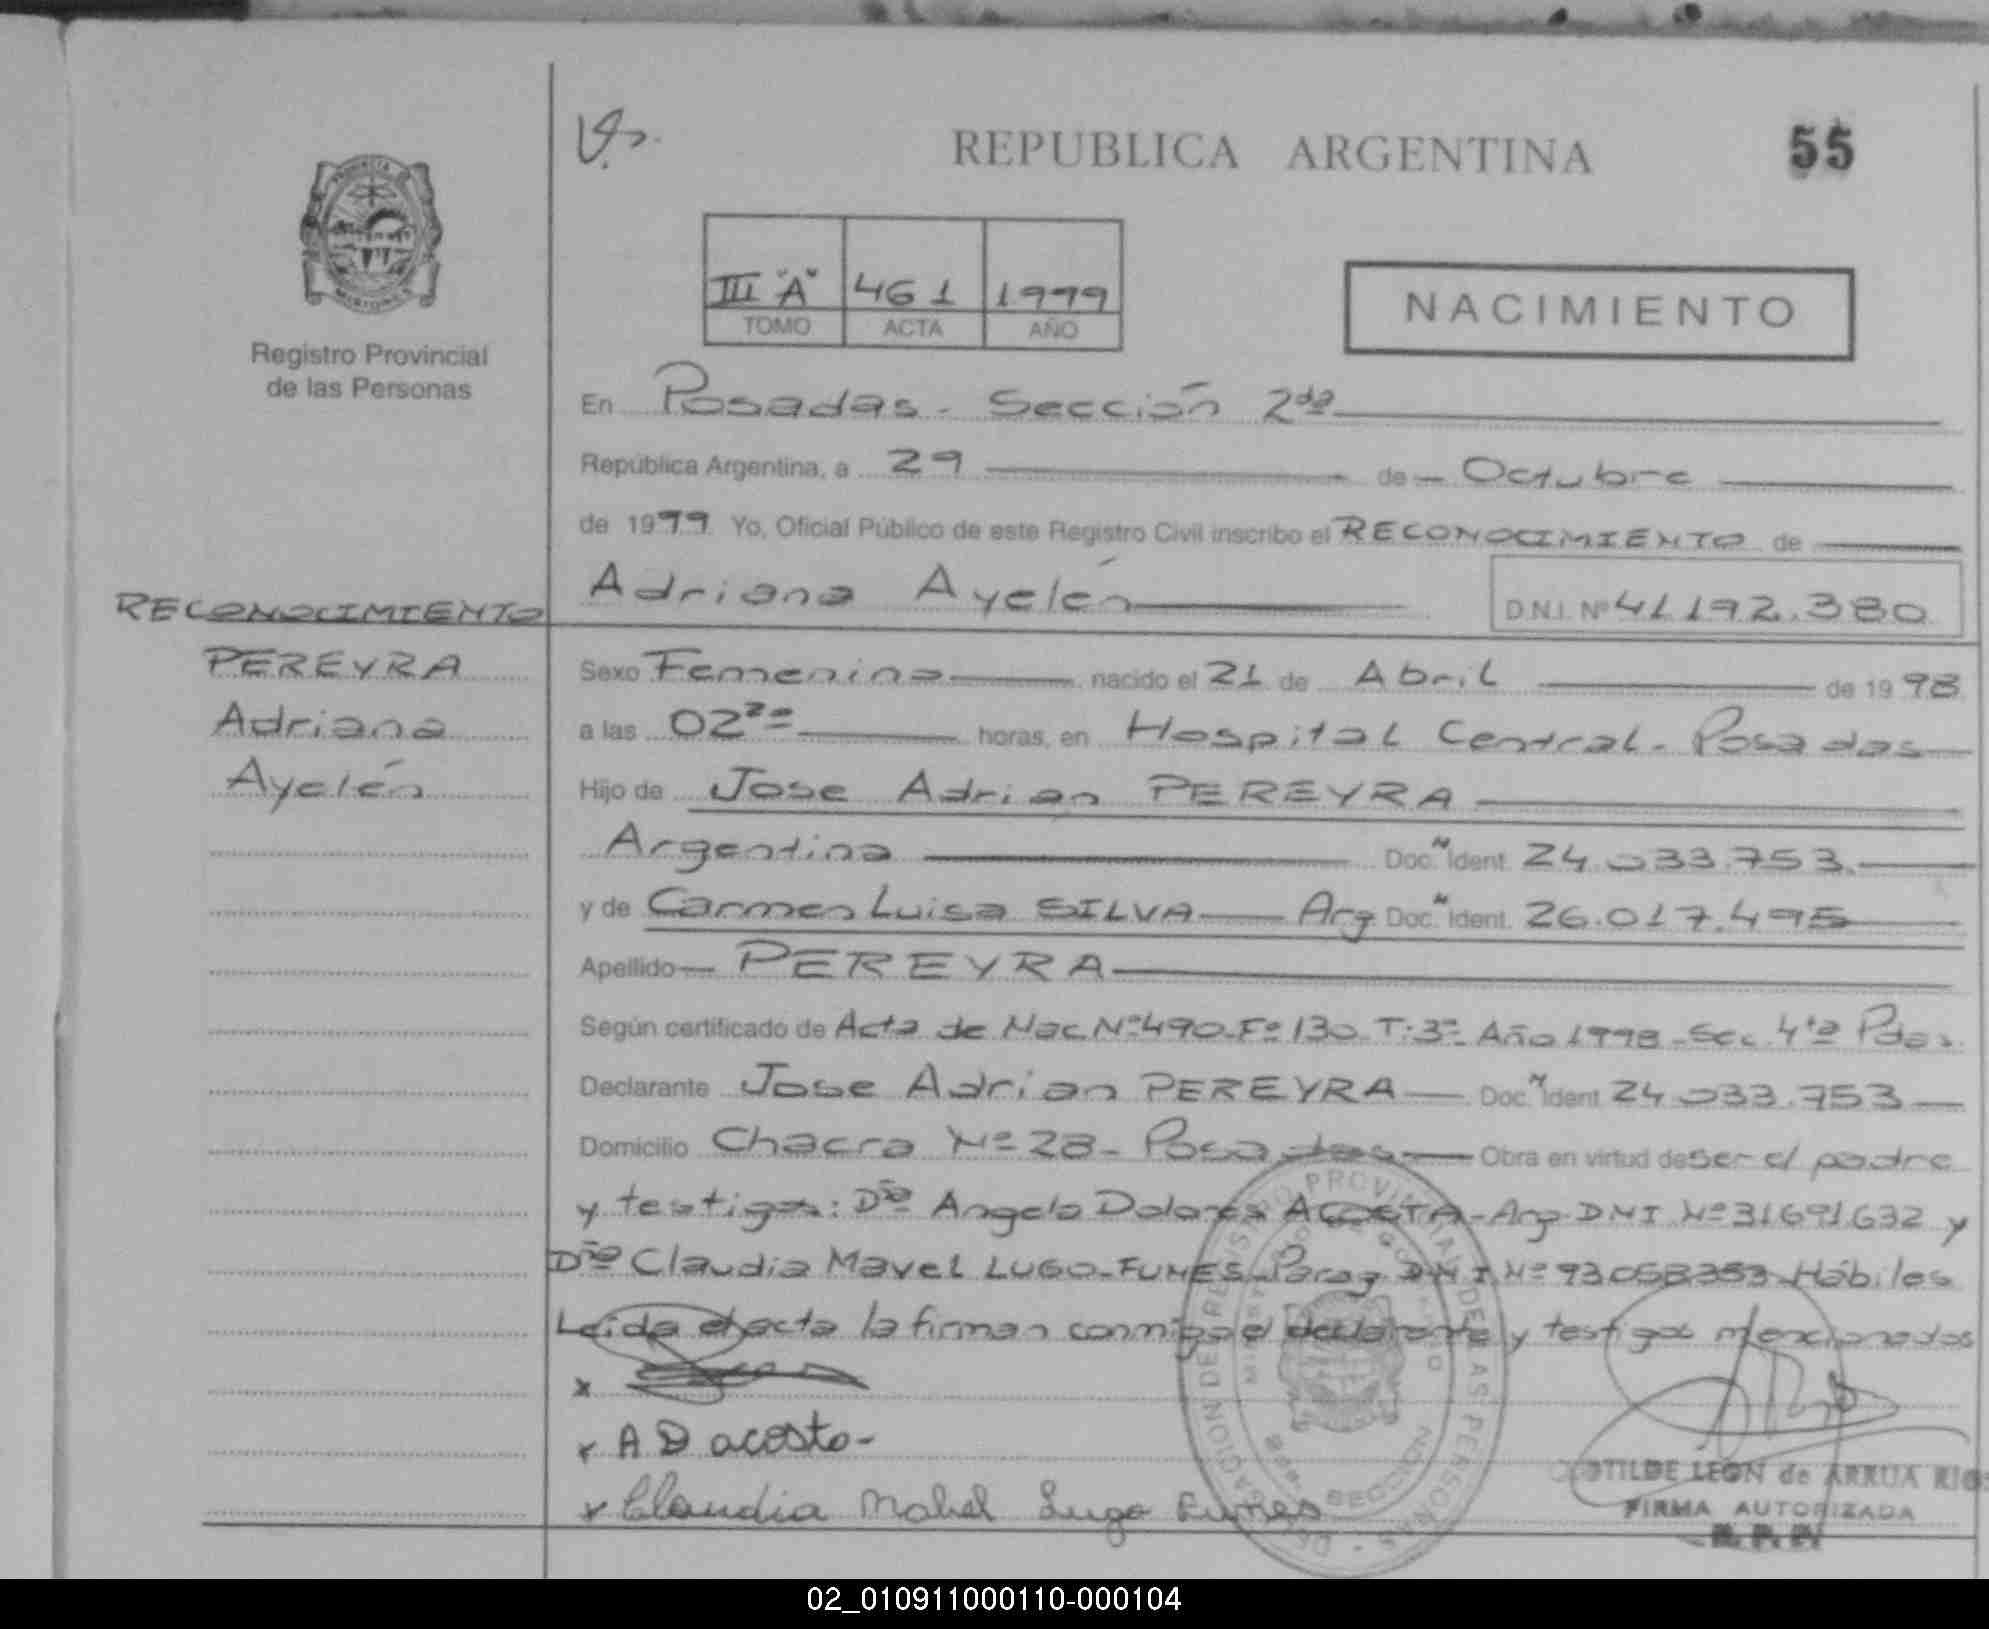 REPUBLICA ARGENTINA
55
III "A" 461 1999
TOMO ACTA AÑO
NACIMIENTO
Registro Provincial
de las Personas
En Posadas - Sección 2da
República Argentina, a 29 de Octubre
de 1999 Yo, Oficial Público de este Registro Civil inscribo el RECONOCIMIENTO de
Adriana Ayelén D.N.I. Nº 41.192.380
RECONOCIMIENTO
PEREYRA
Adriana
Ayelén
Sexo Femenino nacido el 21 de Abril de 1998
a las 02 horas, en Hospital Central - Posadas
Hijo de Jose Adrian PEREYRA
Argentina Doc. N Ident. 24.033.753.
y de Carmen Luisa SILVA Arg Doc. N Ident. 26.017.495
Apellido PEREYRA
Según certificado de Acta de Nac. Nº 490-Fº 130-T: 3º- Año 1998-Sec. 4ta Pdas.
Declarante Jose Adrian PEREYRA Doc. N Ident. 24.033.753
Domicilio Chacra Nº 28 - Posadas Obra en virtud de ser el padre
y testigos: Dña Angela Dolores ACOSTA - Arg. DNI Nº 31691632 y
Dña Claudia Mavel LUGO-FUNES-Parag DNI Nº 93058353 Hábiles
Leída el acta la firman conmigo el declarante y testigos mencionados
x
x A D acosta-
x Claudia Mabel Lugo Funes
DELEGACION DEL REGISTRO PROVINCIAL DE LAS PERSONAS
MINISTERIO DE GOBIERNO
SECCION
CLOTILDE LEON de ARRUA RIOS
FIRMA AUTORIZADA
R. P. P.
02_010911000110-000104